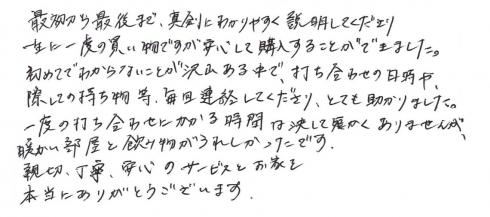 最初から最後まで、真剣にわかりやすく説明してくださり
一生に一度の買い物ですが安心して購入することができました。
初めてでわからないことが沢山ある中で、打ち合わせの日時や、
際しての持ち物等、毎回連絡してくださり、とても助かりました。
一度の打ち合わせにかかる時間は決して短かくありませんが、
暖かい部屋と飲み物がうれしかったです。
親切、丁寧、安心のサービスとお家を
本当にありがとうございます.